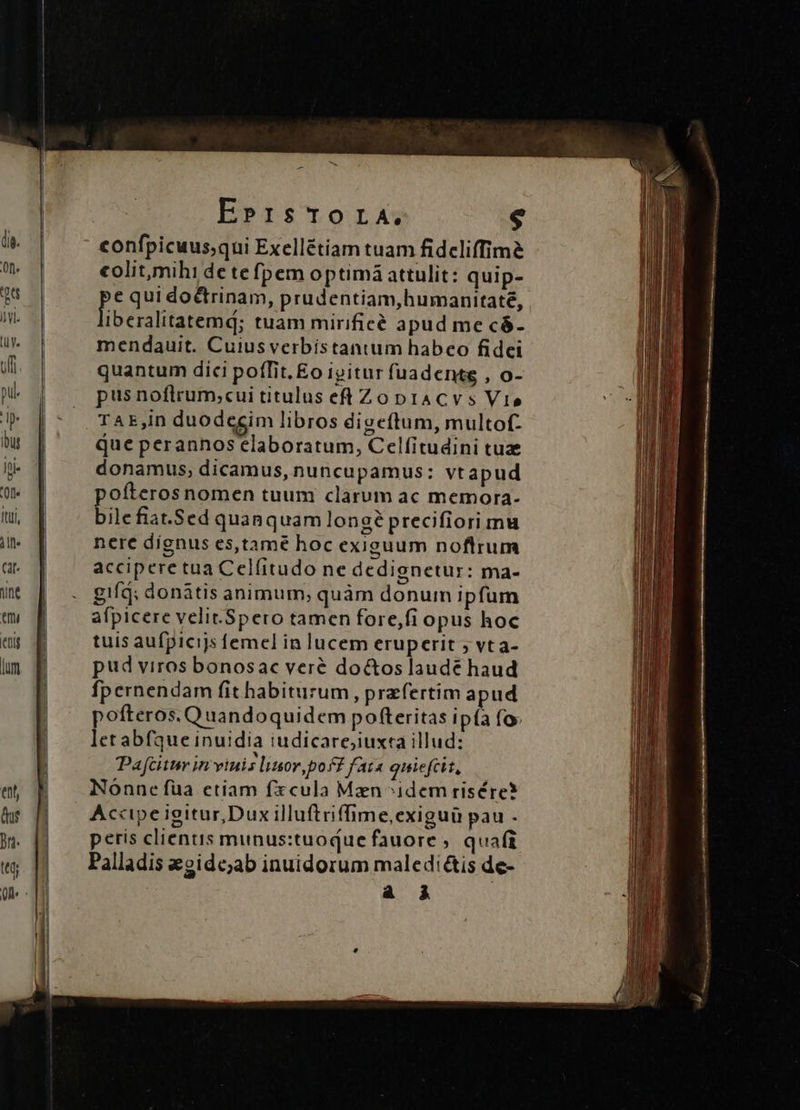 EPISTOLA. 5
conſpicuus,qui Exellētiam tuam fideliſſimè
colit,mihi de te ſpem optimā attulit: quip-
pe qui doctrinam, prudentiam,humanitatē,
liberalitatemq́; tuam mirificè apud me cō-
mendauit. Cuius verbis tantum habeo fidei
quantum dici poſſit. Eo igitur ſuadente , o-
pus noſtrum,cui titulus eſt ZODIACVS VI-
TAE,in duodecim libros digeſtum, multoſ-
que per annos elaboratum, Celſitudini tuæ
donamus, dicamus, nuncupamus: vt apud
poſteros nomen tuum clarum ac memora-
bile fiat.Sed quanquam longè preciſiori mu
nere dignus es,tamē hoc exiguum noſtrum
accipere tua Celſitudo ne dedignetur: ma-
giſq́; donātis animum, quàm donum ipſum
aſpicere velit.Spero tamen fore,ſi opus hoc
tuis auſpicijs ſemel in lucem eruperit ; vt a-
pud viros bonos ac verè doctos laudē haud
ſpernendam ſit habiturum , præſertim apud
poſteros. Quandoquidem poſteritas ipſa ſo-
let abſque inuidia iudicare,iuxta illud:
Paſcitur in viuis liuor,poſt fata quieſcit,
Nónne ſua etiam ſæcula Mæonidem riſére?
Accipe igitur,Dux illuſtriſſime,exiguū pau -
peris clientis munus:tuoque fauore , quaſi
Palladis ægide,ab inuidorum maledictis de-
a 3